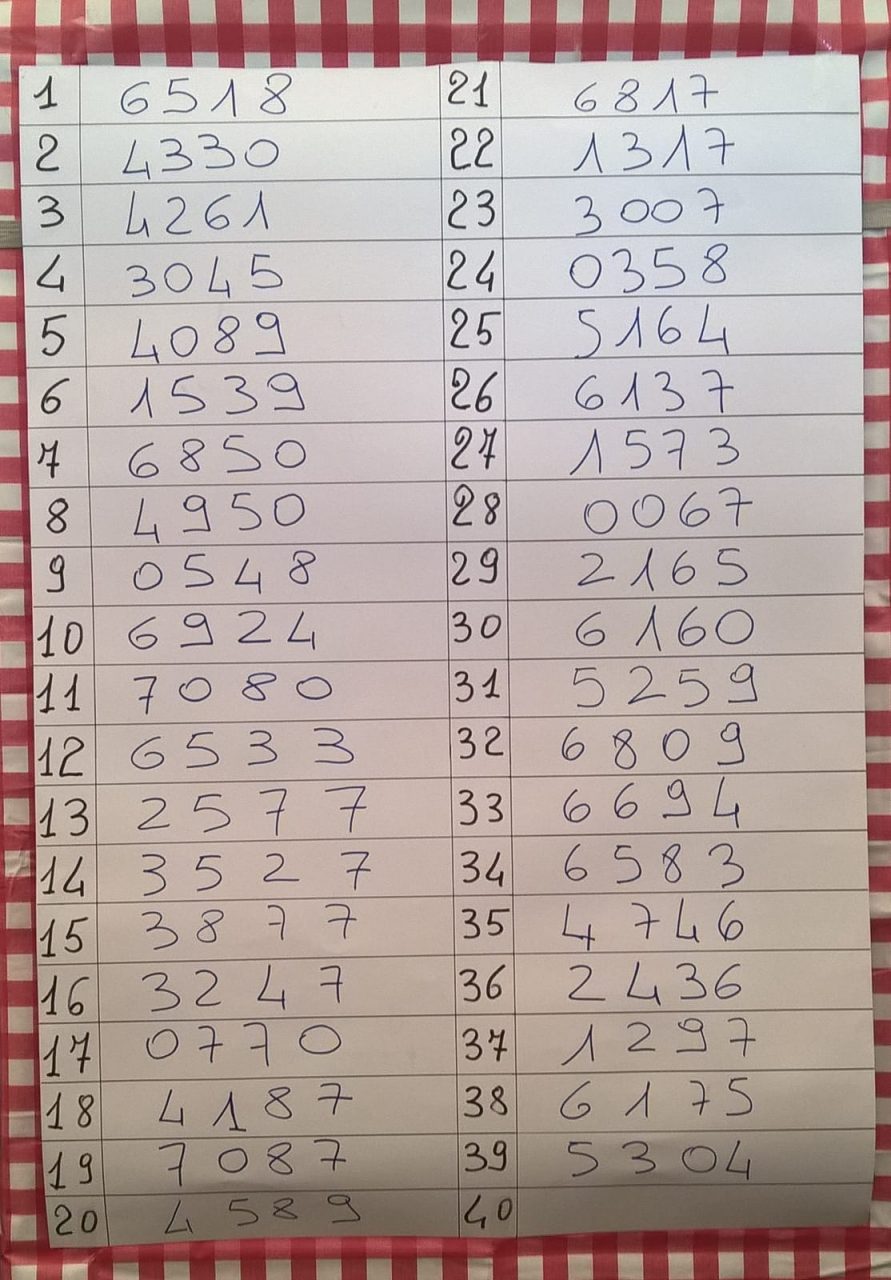 1 6518
2 4330
3 4261
4 3045
5 4089
6 1539
7 6850
8 4950
9 0548
10 6924
11 7080
12 6533
13 2577
14 3527
15 3877
16 3247
17 0770
18 4187
19 7087
20 4589
21 6817
22 1317
23 3007
24 0358
25 5164
26 6137
27 1573
28 0067
29 2165
30 6160
31 5259
32 6809
33 6694
34 6583
35 4746
36 2436
37 1297
38 6175
39 5304
40